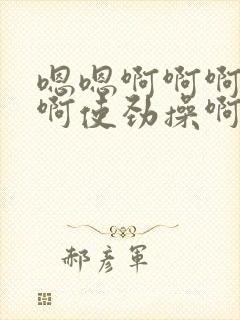 嗯嗯啊啊啊
啊使劲操啊
郝彦军